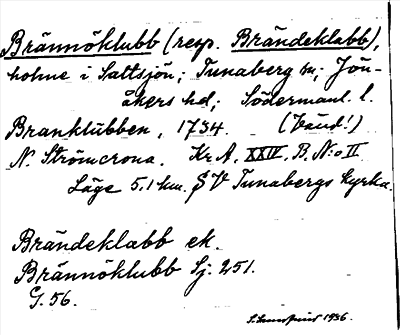 Brännöklubb (resp. Brändeklabb),
holme i Saltsjön; Tunaberg sn; Jön-
åkers hd; Södermanl. l.
Branklubben, 1734. (Vänd!)
N. Strömcrona. Kr. A. XXIV. B. N:o II
Läge 5,1 km. SV Tunabergs kyrka.
Brändeklabb ek.
Brännöklubb Sj. 251.
G. 56.
1936.